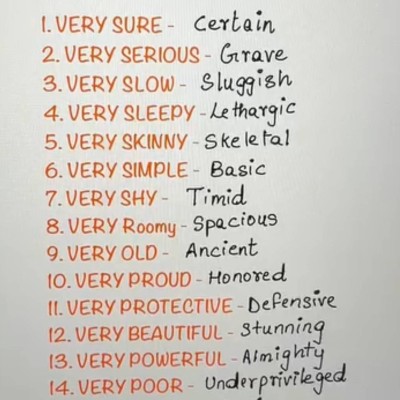 1. VERY SURE - Certain
2. VERY SERIOUS - Grave
3. VERY SLOW - Sluggish
4. VERY SLEEPY - Lethargic
5. VERY SKINNY - Skeletal
6. VERY SIMPLE - Basic
7. VERY SHY - Timid
8. VERY Roomy - Spacious
9. VERY OLD - Ancient
10. VERY PROUD - Honored
11. VERY PROTECTIVE - Defensive
12. VERY BEAUTIFUL - Stunning
13. VERY POWERFUL - Almighty
14. VERY POOR - Underprivileged